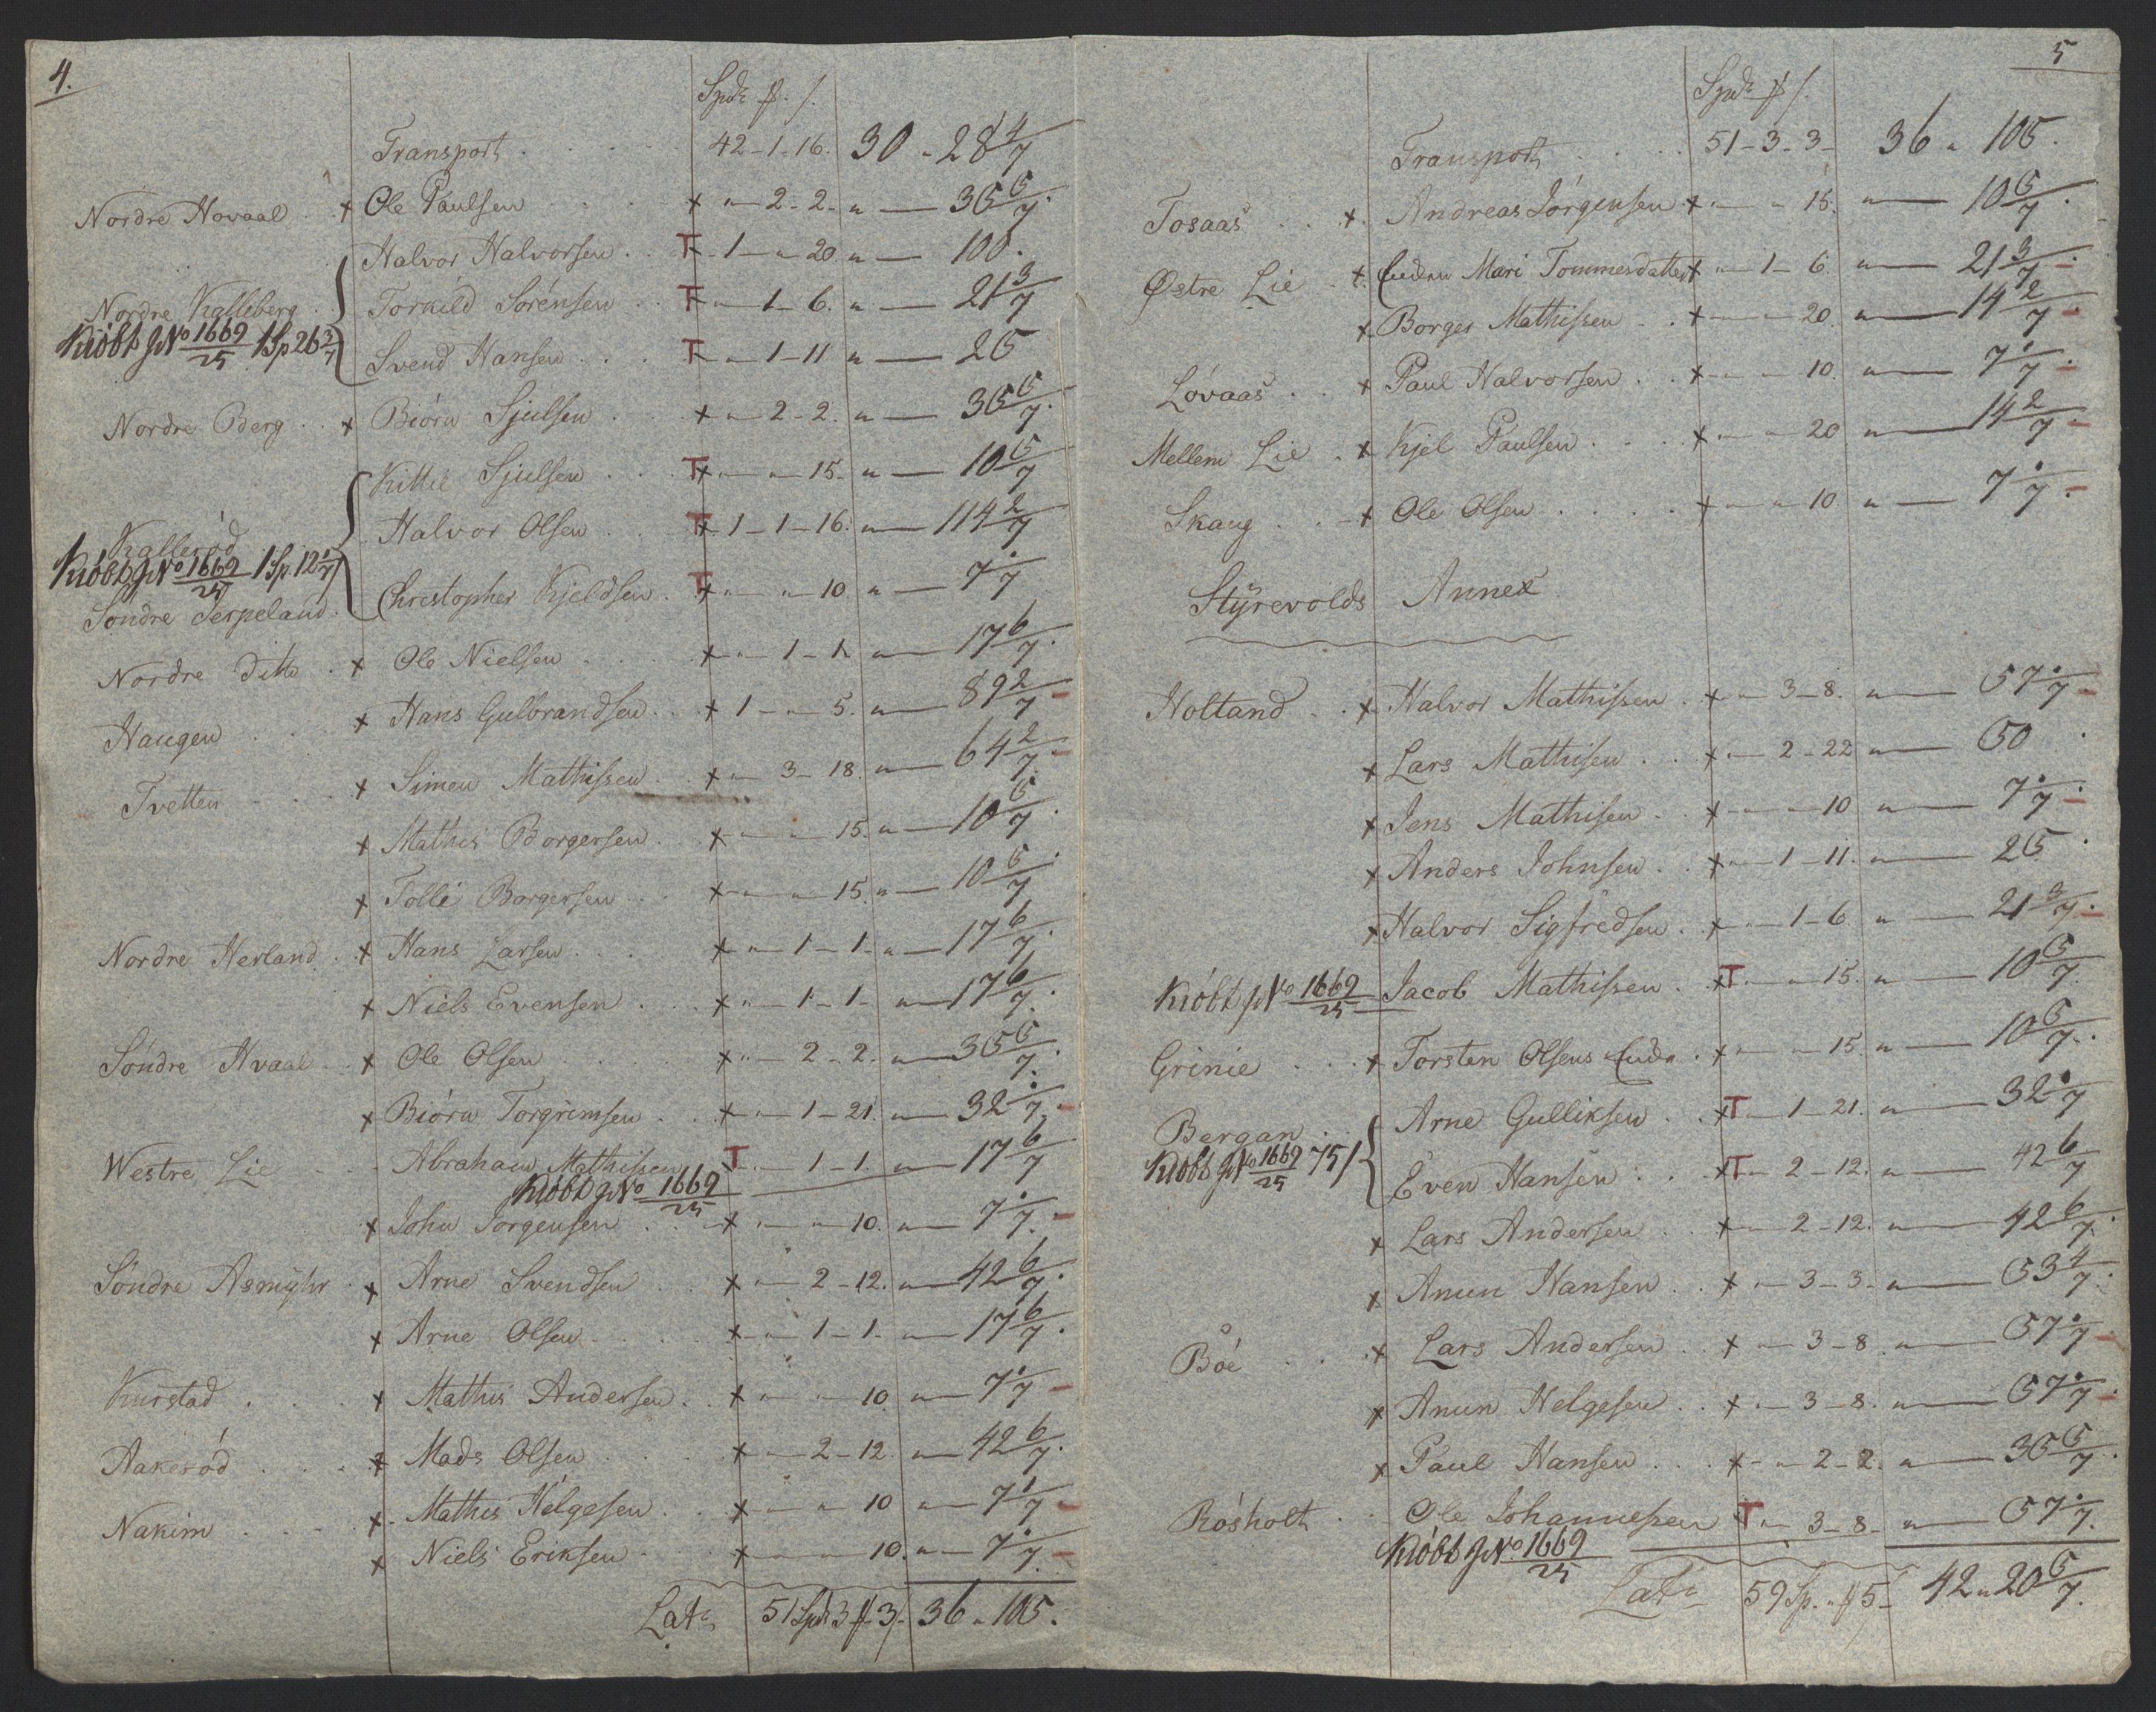 4.
Spd ℔. /.
Transport . . . . 42-1-16. 30 „ 28 4/7
Nordre Hovaal . x Ole Paulsen . . . x „ — 2 - 2 - „ — 35 5/7.
Halvor Halvorsen . . T - 1 — „ 20. „ — 100.
Nordre Kalleberg . Torkild Sørensen . . T „ — 1 - 6. „ — 21 3/7
Kiøbt J No 1669/25 1 Sp 26 3/7 Svend Hansen . . . T „ — 1 - 11 „ — 25
Nordre Berg . . x Biørn Sjulsen . . x „ — 2 - 2. „ — 35 5/7.
Kittil Sjulsen . . . Tx „ — „ 15. „ — 10 5/7
Kallerød . . Halvor Olsen . . . Tx 1 - 1 - 16. „ — 114 2/7
Kiøbt J No 1669/25 1 Sp. 12 1/7
Søndre Serpeland . Christopher Kjeldsen . Tx „ — „ 10. „ — 7 1/7
Nordre Ditto . x Ole Nielsen . . . x „ — 1 - 1. „ — 17 6/7.
Haugen . . . x Hans Gulbrandsen . . x 1 — „ 5. „ — 89 2/7
Tvetten . . . x Simen Mathissen . . x „ — 3 - 18. „ — 64 2/7.
x Mathis Borgersen . . x „ — „ 15. „ — 10 5/7.
x Tollé Borgersen . . x „ — „ 15. „ — 10 5/7.
Nordre Herland . . x Hans Larsen . . . x „ — 1 - 1. „ — 17 6/7.
x Niels Evensen . . . x „ — 1 - 1. „ — 17 6/7.
Søndre Hvaal . . x Ole Olsen . . . x „ — 2 - 2. „ — 35 5/7.
x Biørn Torgrimsen . . x „ — 1 - 21. „ — 32 1/7.
Westre Lie . . . Abraham Mathissen T „ — 1 - 1. „ — 17 6/7
Kiøbt J No 1669/25
x John Jørgensen . . . x „ — „ 10. „ — 7 1/7.
Søndre Asmyhr . x Arne Svendsen . . x „ — 2 - 12. „ — 42 6/7.
x Arne Olsen . . . . x „ — 1 - 1. „ — 17 6/7.
Kurstad . . . x Mathis Andersen . . x „ — „ 10. „ — 7 1/7
Aakerød . . . x Mads Olsen . . . x „ — 2 - 12. „ — 42 6/7.
Nakim . . . . x Mathis Helgesen . . x „ — „ 10. „ — 7 1/7
x Niels Eriksen . . x „ — „ 10. „ — 7 1/7.
Lats 51 Spd 3 ℔ 3/- 36 „ 105.
5
Spd ℔ /.
Transport . . . . 51 - 3 - 3 - 36 „ 105.
Tosaas . . x. Andreas Jørgensen x „ — „ 15. „ — 10 5/7.
Østre Lie . x. Enken Mari Tommesdatter x „ — 1 - 6. „ — 21 3/7.
x Borger Mathissen . . x „ — „ 20. „ — 14 2/7.
Løvaas . . x Paul Halvorsen . . x „ — „ 10. „ — 7 1/7.
Mellem Lie . x Kjel Paulsen . . . x „ — „ 20 „ — 14 2/7.
Skaug . . . x Ole Olsen . . . . x „ — „ 10. „ — 7 1/7.
Styrevolds Annex
Holtand . . x Halvor Mathissen . x „ — 3 - 8. „ — 57 1/7
x Lars Mathisen . . x „ — 2 - 22 „ — 50 .
x Jens Mathisen . . x „ — „ 10 „ — 7 1/7.
x Anders Johnsen . . x „ — 1 - 11. „ — 25 .
x Halvor Sigfredsen . x „ — 1 - 6. „ — 21 3/7.
Kiøbt J No 1669/25 Jacob Mathissen . xT „ — „ 15. „ — 10 5/7.
Grinie . . . x Torsten Olsens Enke . x „ — „ 15. „ — 10 5/7.
Bergan . . Arne Gulliksen . . xT „ — 1 - 21. „ — 32 1/7
Kiøbt J No 1669/25 75/ Even Hansen . . xT „ — 2 - 12. „ — 42 6/7
x Lars Andersen . . x „ — 2 - 12. „ — 42 6/7.
x Anun Hansen . . x „ — 3 - 3. „ — 53 4/7.
Bøe . . . x Lars Andersen . . x „ — 3 - 8. „ — 57 1/7
x Anun Helgesen . . x „ — 3 - 8. „ — 57 1/7.
x Paul Hansen . . . x „ — 2 - 2. „ — 35 5/7.
Røsholt . . Ole Johannesen T „ — 3 - 8 - „ — 57 1/7.
Kiøbt J No 1669/25
Lats 59 Sp. „ ℔ 5/- 42 „ 20 5/7.